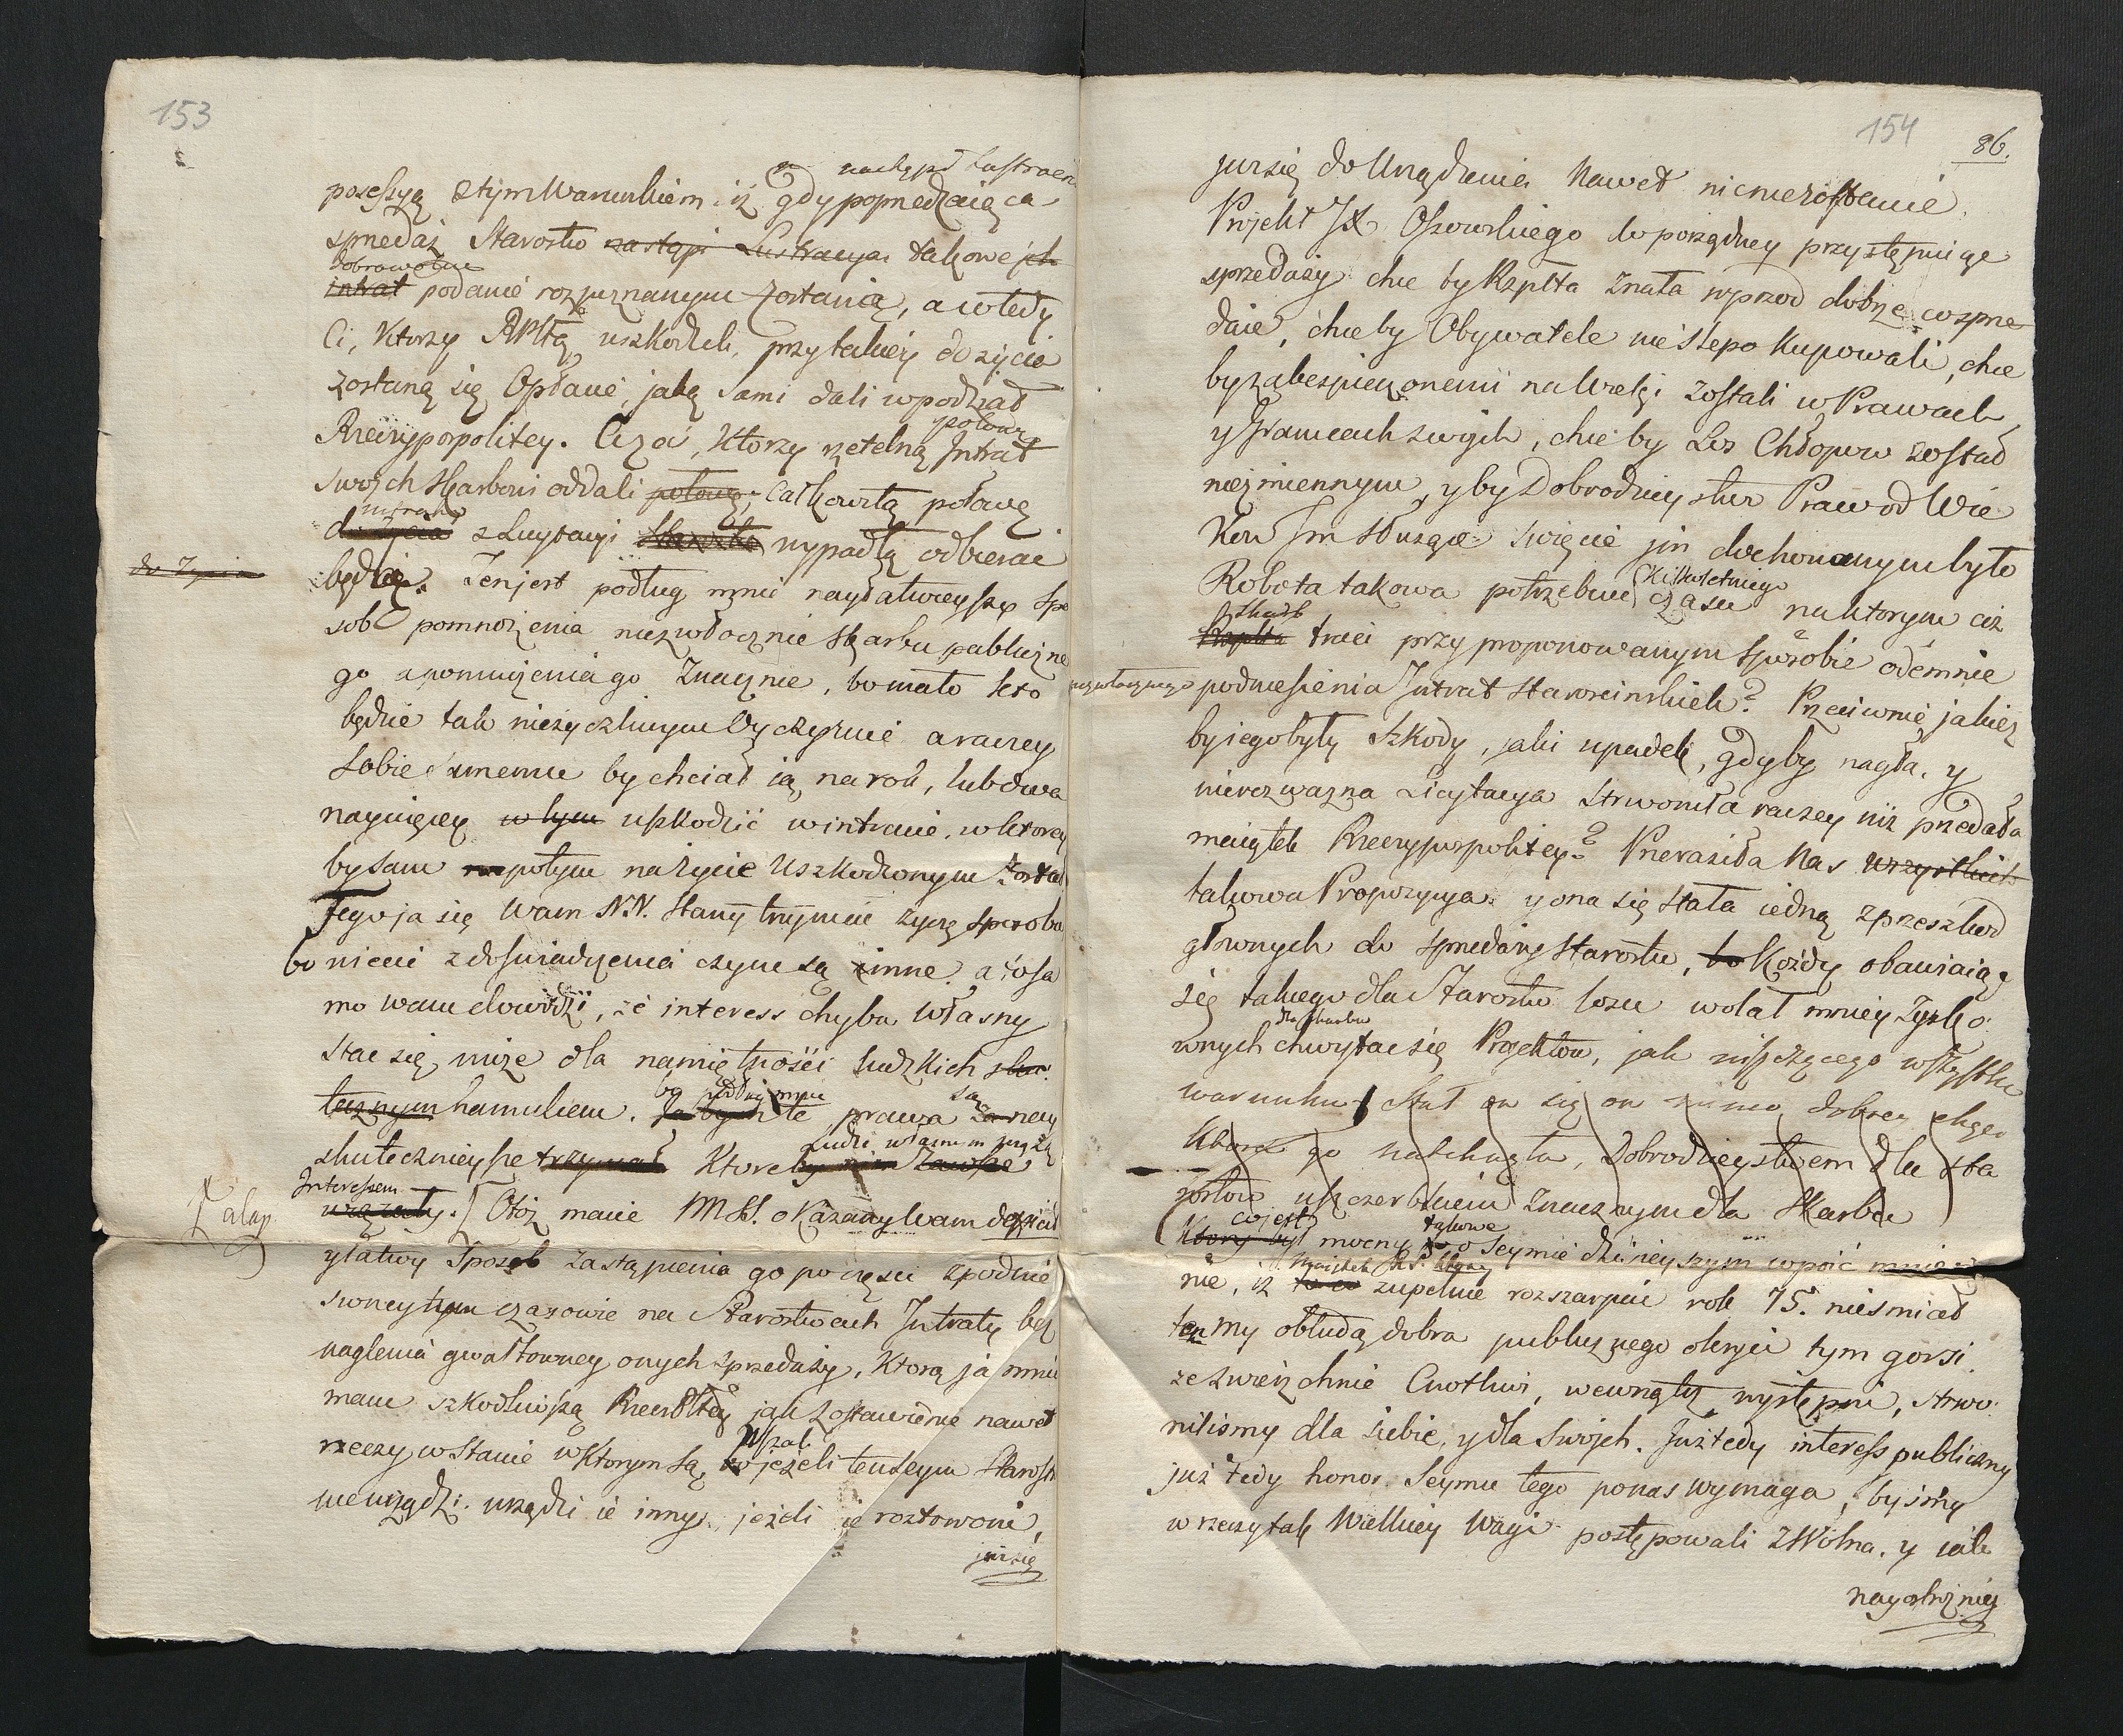 153
nastąpi Lustracya
possessyą z tym Warunkiem iż gdy poprzedzaiąca
sprzedaż Starostw zastąpi Lustracya takowe ich
dobrowolne
intrat podanie rozpuznanym zostanie, a wtedy
Ci, Ktorzy RPltą uszkodzili, przy takiey do życia
zostaną się Opłacie, jaką sami dali w podział
Rzeczypospolitey. Ci za, Ktorzy rzetelną Intrat
połowę
swoich Skarbowi oddali połowę, całkowitą połowę
intrat
do życia z Licytacyi wypadłą odbierać
do życia
będzie. Ten jest podług mnie nayłatwieyszy spo
sob pomnożenia niezwłocznie Skarbu publiczne
go a pomnożenia go Znacznie, bo mało kto
będzie tak nieżyczliwym Oyczyznie a raczey
Sobie samemu by chciał ią na rok, lub dwa
naywięcey w tym uszkodzić w intracie, w ktorey
by sam potym na życie Uszkodzonym został
Tego ja się Wam N.N. Stany trzymać życzę sposobu
bo wiecie z doświadczenia czym są inne, a to sa
mo wam dowodzi, że interess chyba własny
stac się może dla namiętności ludzkich sku
tecznym hamulcem.
bo podług mnie te prawa są nay
skutecznieysze Ktore ludzi własnym wiążą
Interessem
wiązały. Otoż macie MSS. okazany Wam
y łatwy Sposob zastąpienia go po części z podnie
sioney tym czasowie na Starostwach Intraty bez
naglenia gwałtowney onych sprzedaży, Ktorą ja mnie
mam szkodliwszą Rzeczpltey jak zostawienie nawet
rzeczy w Stanie w Ktorym są,
Wszak
jeżeli ten seym Starostw
nie urządzi, urządzi ie inny, jeżeli ie roztrwoni,
już się
154
86.
już się do Urządzenia Nawet nic nie zostanie.
Projekt JX. Ossowskiego do porządney przystępuiąc
sprzedaży chce by Rzplta znała wprzod dobrze co sprze
daie, chce by Obywatele nie slepo kupowali, chce
by zabespieczonemi na Wieki zostali w Prawach
y Granicach swoich, chce by Los Chłopow został
niezmiennym, y by Dobrodzieystwo Praw od Wie
kow Im służące swięcie jm dochowanym było
Robota takowa potrzebuie Kilkoletniego czasu na ktorym coż
skarb
Rzplta traci przy proponowanym sposobie odemnie
niezwłocznego podniesienia Intrat Starościnskich? Przeciwnie jakież
by iego były Szkody, jaki upadek, gdyby nagła, y
nierozważna Licytacya strwoniła raczey niż przedała
maiątek Rzeczypospolitey? Przeraziła Nas wszystkich
takowa Propozycya y ona się stała iedną z przeszkod
głownych do sprzedaży Starostw, bo Każdy obawiaiąc
się takiego dla Starostw losu wolał mniey Zysko
dla skarbu
wnych chwytac się Projektow, jak niszczącego wszystkie
warunku. Stał się on mimo dobrey chęci
Ktora go natchnęła, Dobrodzieystwem dla Sta
rostow uszczerbkiem znacznym dla Skarbu
co jest
Ktory był mocny
takowe
to Seymie dzisieyszym wpoić mniema
nie, iż zupełnie rozszarpać rok 75. nie smiał
ten my obłudą dobra publicznego okryci tym gorsi
że zwierzchnie Cnotliwi, wewnątrz występni, strwo
niliśmy dla siebie, y dla Swoich. Już tedy interess publiczny
już tedy honor Seymu tego po nas wymaga, byśmy
w rzeczy tak Wielkiey Wagi postępowali z Wolna, y iak
nayostrożniey